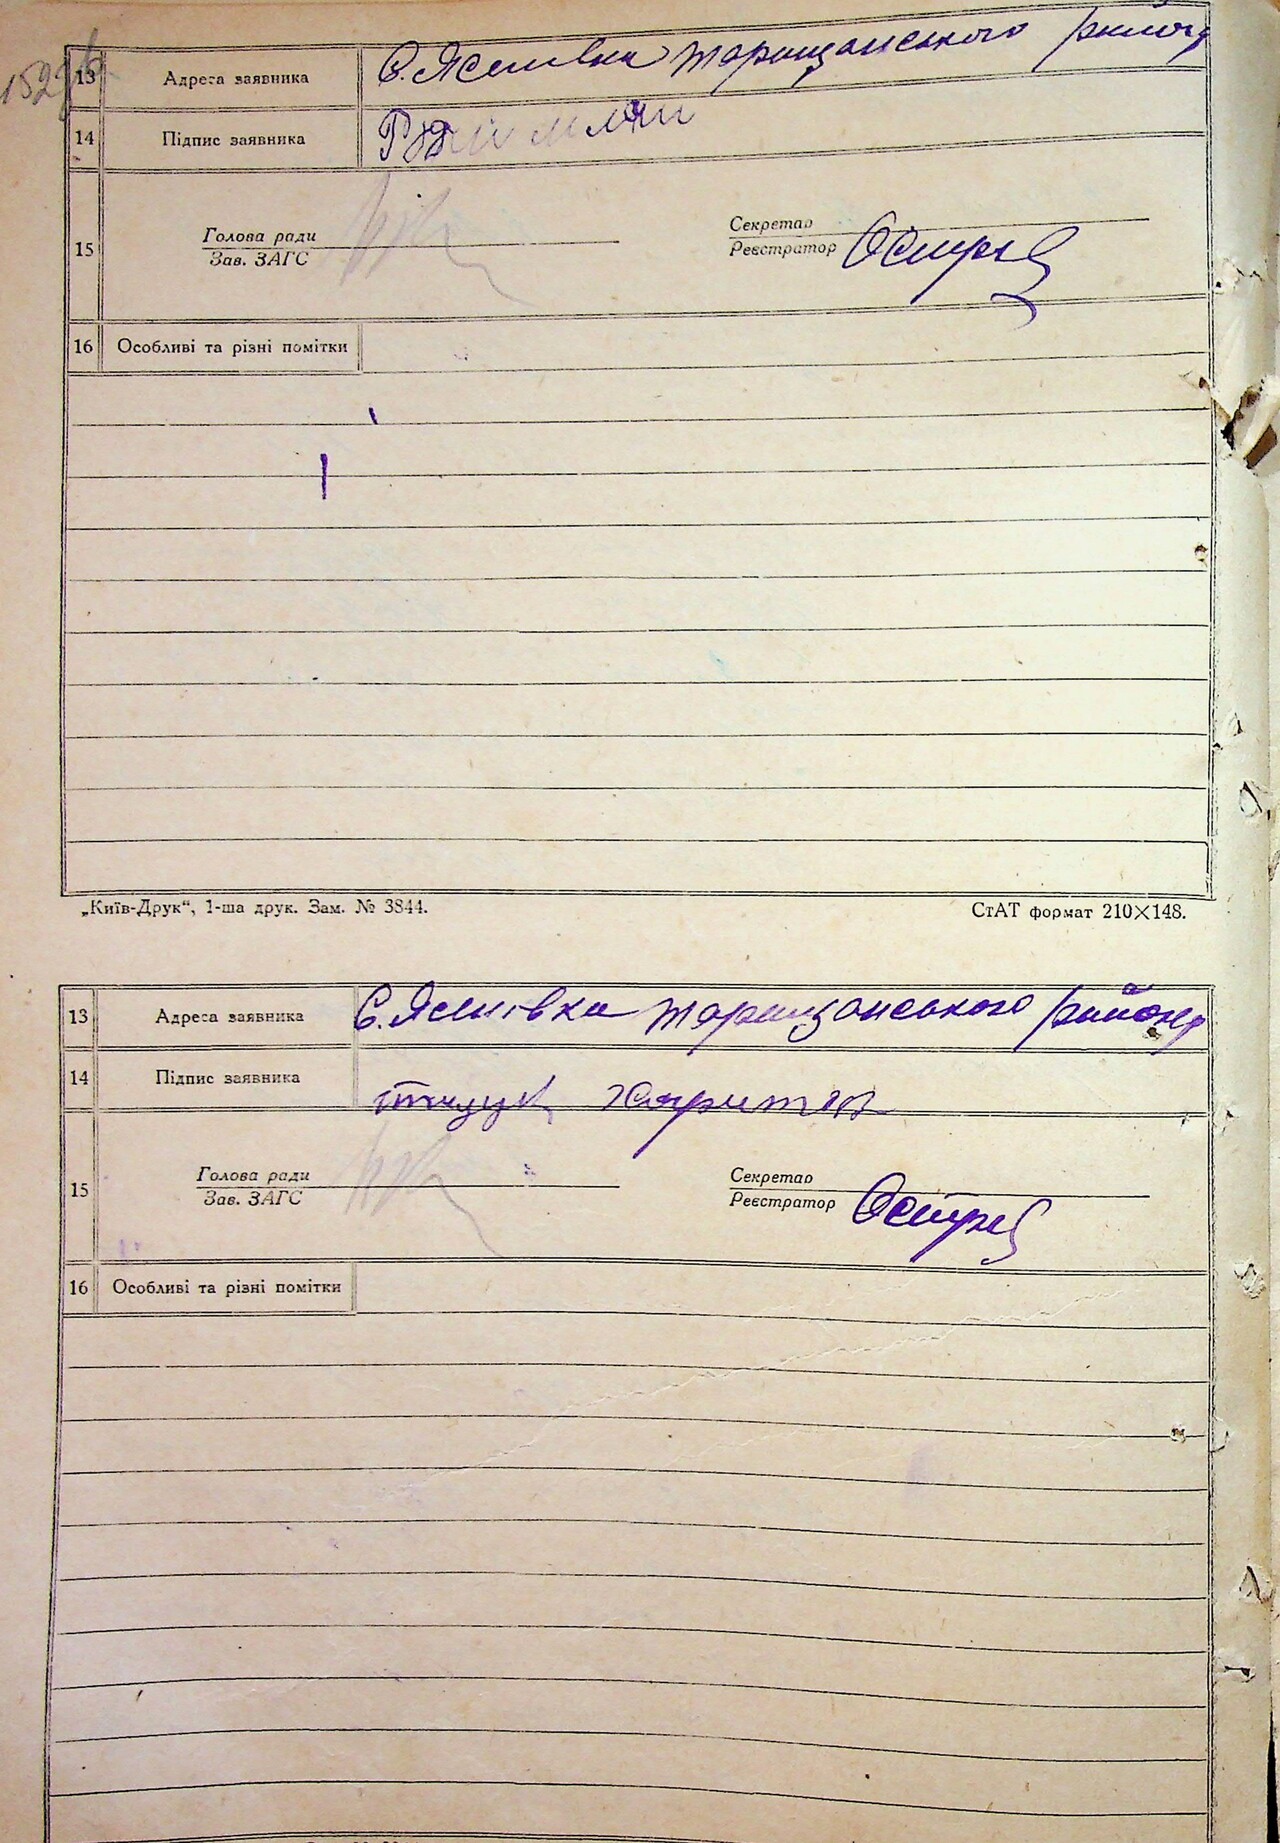 13 Адреса заявника с. Ясенівка Таращанського району
14 Підпис заявника
Голова ради Секретар
15
Зав. ЗАГС Реєстратор
16 Особливі та різні помітки
„Київ-Друк“, 1-ша друк. Зам. № 3844. СтАТ формат 210×148.
13 Адреса заявника с. Ясенівка Таращанського району
14 Підпис заявника Харитон
Голова ради Секретар
15
Зав. ЗАГС Реєстратор
16 Особливі та різні помітки